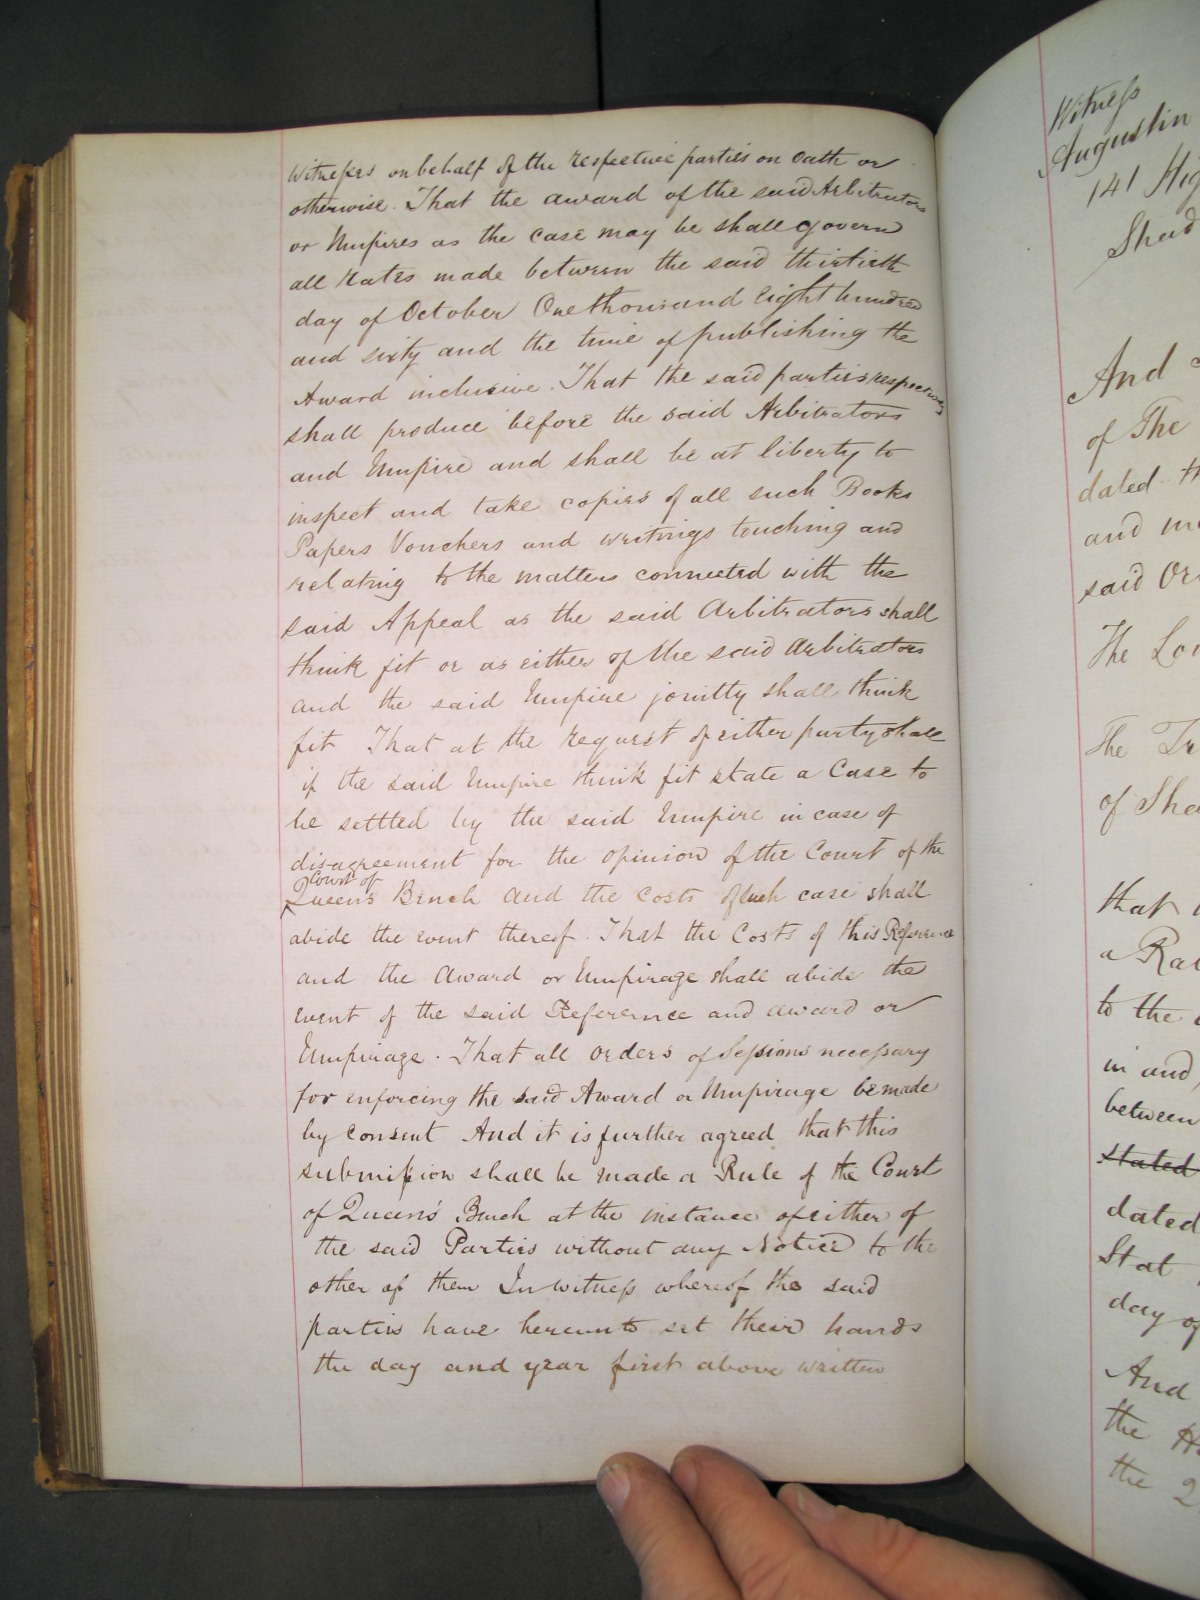 Witness on behalf of the respective parties on oath or
otherwise. That the award of the said Arbitrators
or Umpires as the case may be shall govern
all rates made between the said thirtieth
day of October One thousand eight hundred
and sixty and the time of publishing the
Award inclusive. That the said parties respectively
shall produce before the said Arbitrators
and Umpire and shall be at liberty to
inspect and take copies of all such Books
Papers Vouchers and writings touching and
relating to the matters connected with the
said Appeal as the said Arbitrators shall
think fit or as either of the said Arbitrators
and the said Umpire jointly shall think
fit That at the request of either party shall
if the said Umpire think fit state a Case to
be settled by the said Umpire in case of
disagreement for the opinion of the Court of the
Court of
Queen's Bench and the costs of such case shall
abide the event thereof. That the Costs of this Reference
and the Award or Umpirage shall abide the
event of the said Reference and award or
Umpirage. That all orders of Sessions necessary
for enforcing the said Award or Umpirage be made
by consent And it is further agreed that this
submission shall be made a Rule of the Court
of Queen's Bench at the instance of either of
the said Parties without any Notice to the
other of them In witness whereof the said
parties have hereunto set their hands
the day and year first above written
Witness
Augustin
141
And
of The
dated
and
said
The
The
of
that
a
to the
in and
between
stated
dated
Stat
day of
And
the
the 2